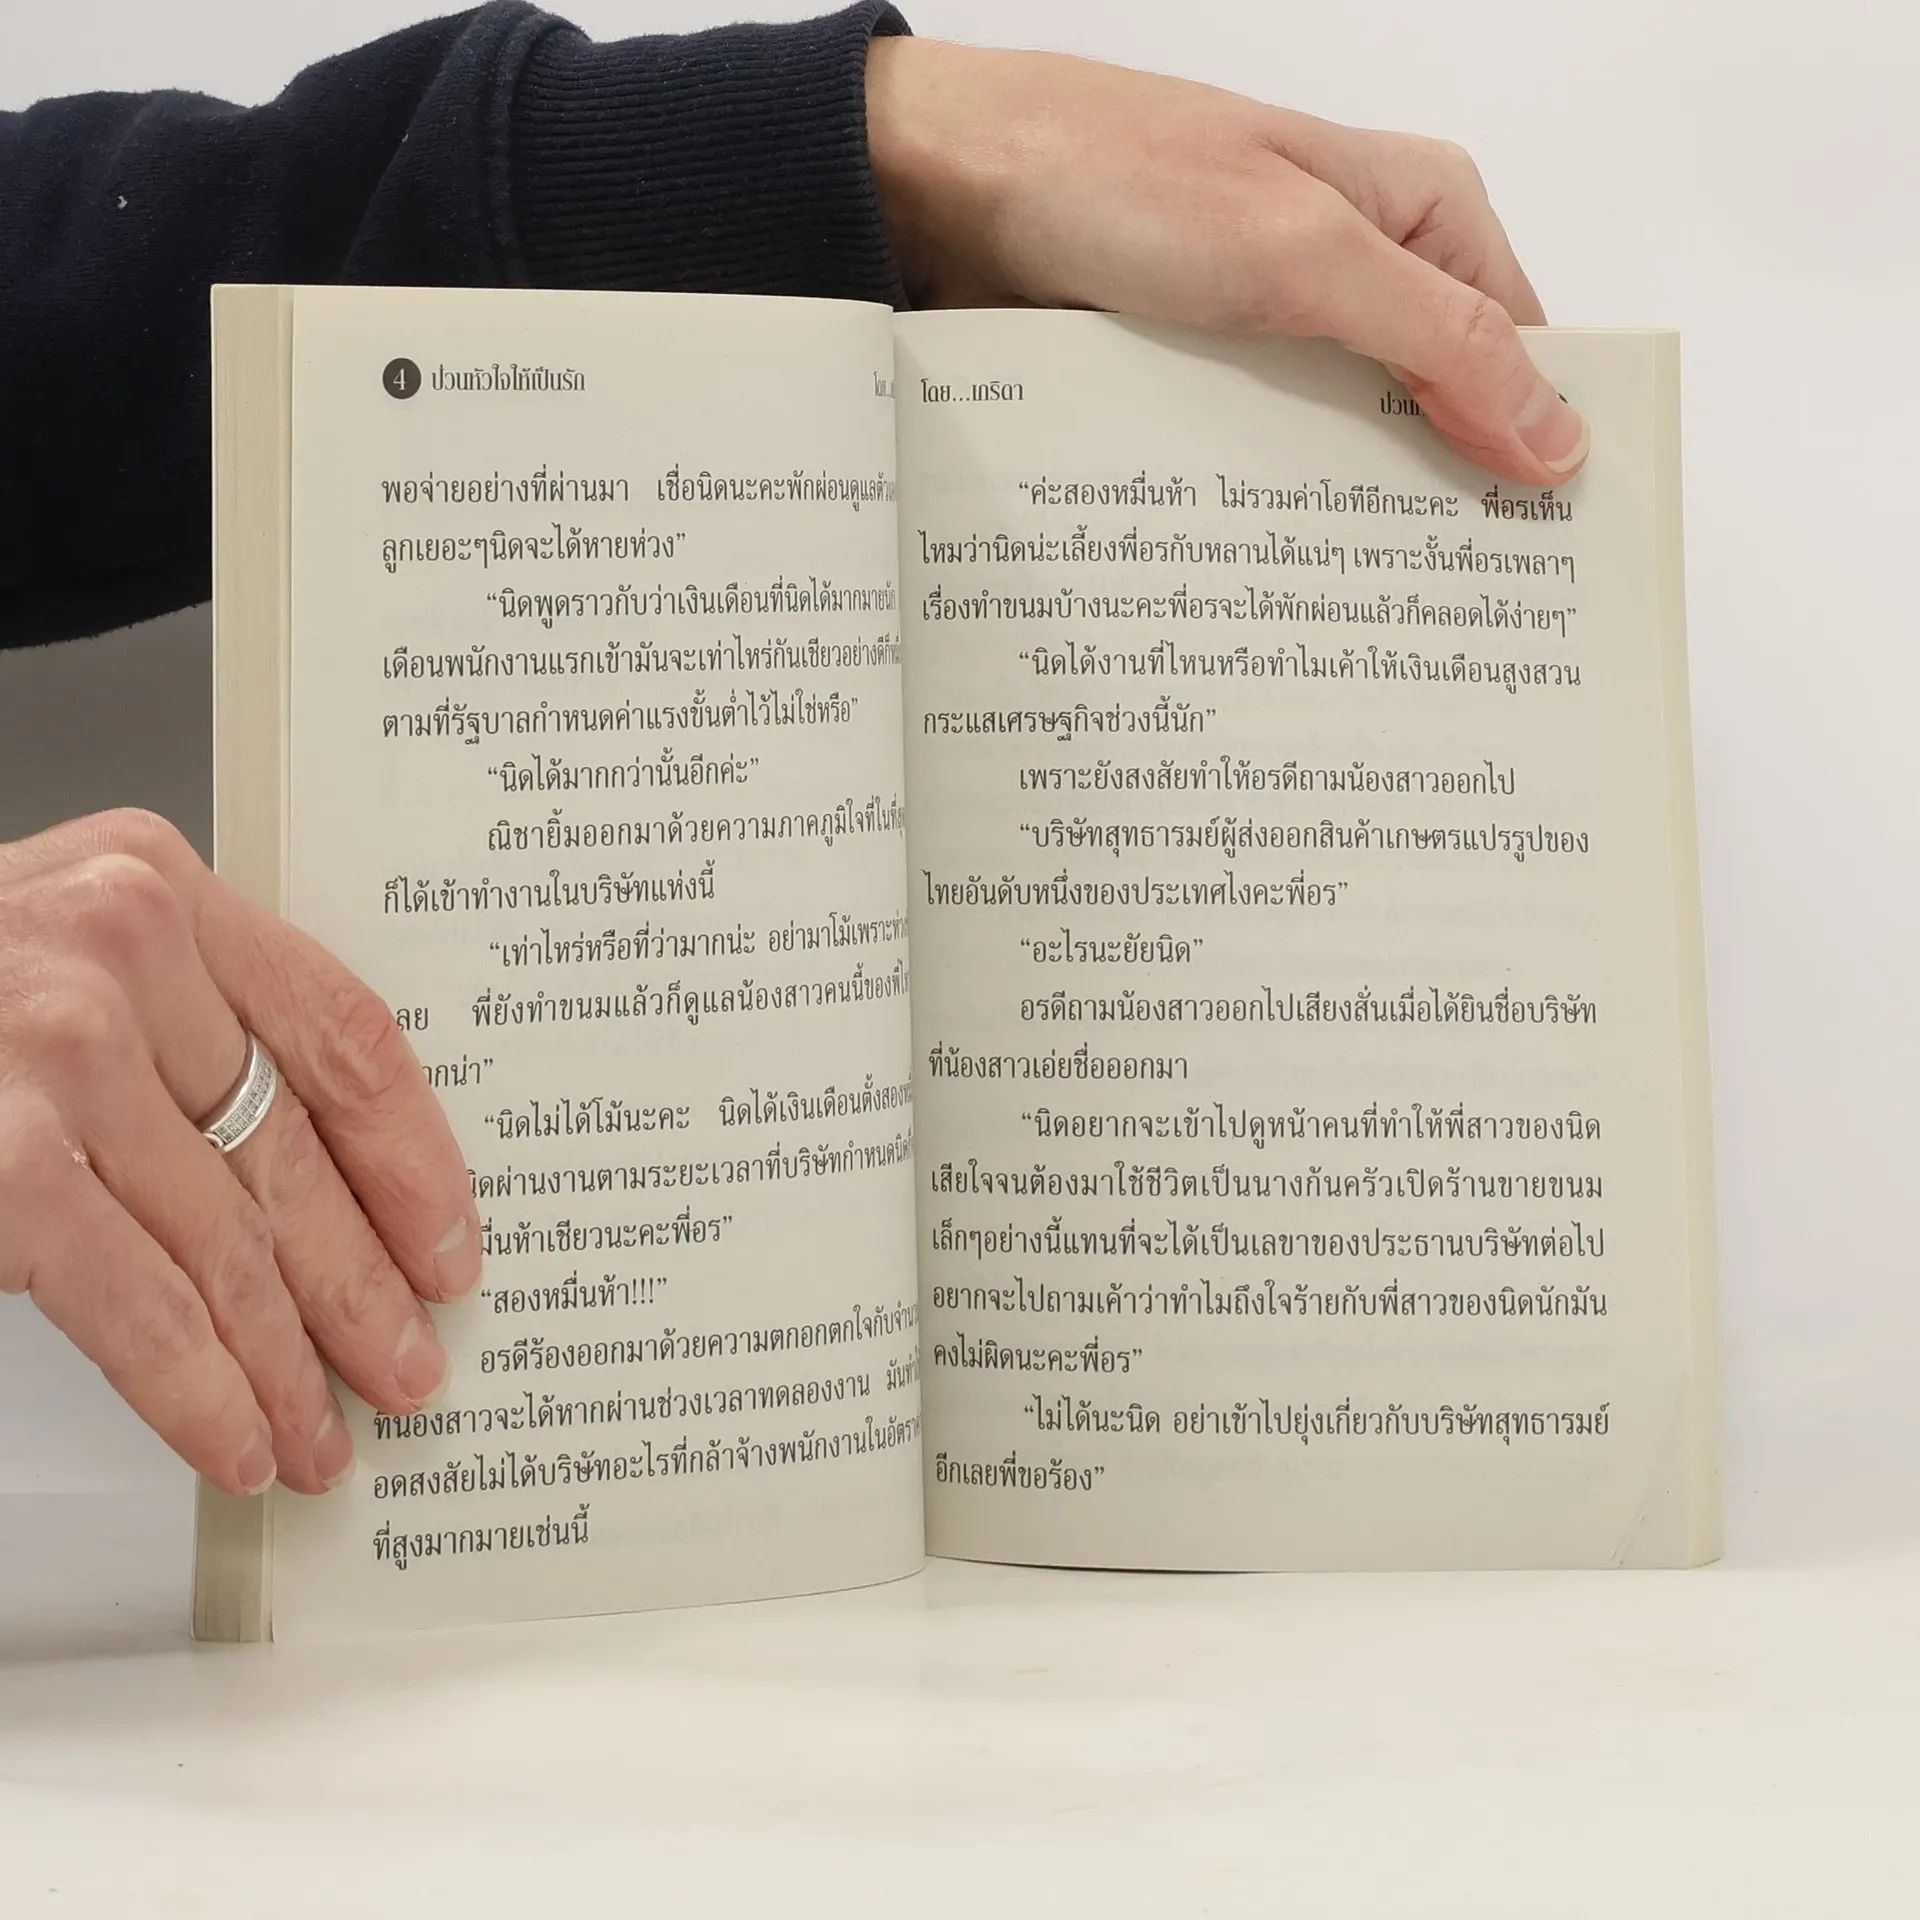 4 ป่วนหัวใจให้เป็นรัก
พอจ่ายอย่างที่ผ่านมา เชื่อนิดนะคะพักผ่อนดูแล
ลูกเยอะๆนิดจะได้หายห่วง”
“นิดพูดราวกับว่าเงินเดือนที่นิดได้มากมาย
เดือนพนักงานแรกเข้ามันจะเท่าไหร่กันเชียวอย่างดี
ตามที่รัฐบาลกำหนดค่าแรงขั้นต่ำไว้ไม่ใช่หรือ”
“นิดได้มากกว่านั้นอีกค่ะ”
ณิชายิ้มออกมาด้วยความภาคภูมิใจที่ในที่
ก็ได้เข้าทำงานในบริษัทแห่งนี้
“เท่าไหร่หรือที่ว่ามากน่ะ อย่ามาโม้เพราะ
ลย พี่ยังทำขนมแล้วก็ดูแลน้องสาวคนนี้ของพี่
กน่า”
“นิดไม่ได้โม้นะคะ นิดได้เงินเดือนตั้งสอง
ผ่านงานตามระยะเวลาที่บริษัทกำหนด
ห้าเชียวนะคะพี่อร”
“สองหมื่นห้า!!!”
อรดีร้องออกมาด้วยความตกอกตกใจกับ
ที่น้องสาวจะได้หากผ่านช่วงเวลาทดลองงาน
อดสงสัยไม่ได้บริษัทอะไรที่กล้าจ้างพนักงานใน
ที่สูงมากมายเช่นนี้
โดย...เกริดา
“ค่ะสองหมื่นห้า ไม่รวมค่าโอทีอีกนะคะ พี่อรเห็น
ไหมว่านิดน่ะเลี้ยงพี่อรกับหลานได้แน่ๆ เพราะงั้นพี่อรเพลาๆ
เรื่องทำขนมบ้างนะคะพี่อรจะได้พักผ่อนแล้วก็คลอดได้ง่ายๆ”
“นิดได้งานที่ไหนหรือทำไมเค้าให้เงินเดือนสูงสวน
กระแสเศรษฐกิจช่วงนี้นัก”
เพราะยังสงสัยทำให้อรดีถามน้องสาวออกไป
“บริษัทสุทธารมย์ผู้ส่งออกสินค้าเกษตรแปรรูปของ
ไทยอันดับหนึ่งของประเทศไงคะพี่อร”
“อะไรนะยัยนิด”
อรดีถามน้องสาวออกไปเสียงสั่นเมื่อได้ยินชื่อบริษัท
ที่น้องสาวเอ่ยชื่อออกมา
“นิดอยากจะเข้าไปดูหน้าคนที่ทำให้พี่สาวของนิด
เสียใจจนต้องมาใช้ชีวิตเป็นนางก้นครัวเปิดร้านขายขนม
เล็กๆอย่างนี้แทนที่จะได้เป็นเลขาของประธานบริษัทต่อไป
อยากจะไปถามเค้าว่าทำไมถึงใจร้ายกับพี่สาวของนิดนักมัน
คงไม่ผิดนะคะพี่อร”
“ไม่ได้นะนิด อย่าเข้าไปยุ่งเกี่ยวกับบริษัทสุทธารมย์
อีกเลยพี่ขอร้อง”